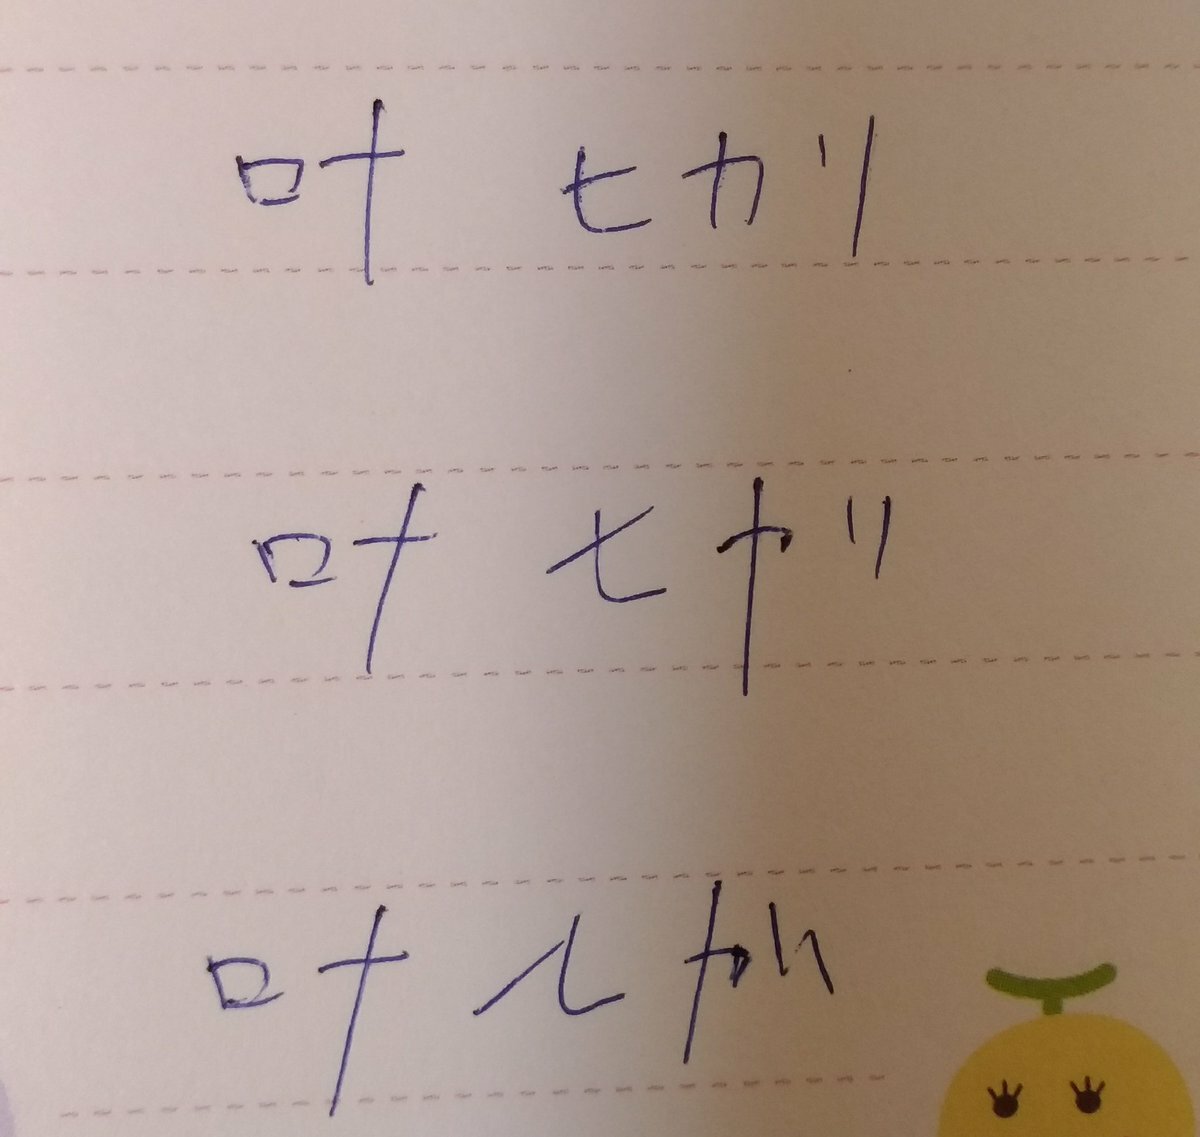 叶 ヒカリ
叶 ヒカリ
叶 ヒカリ